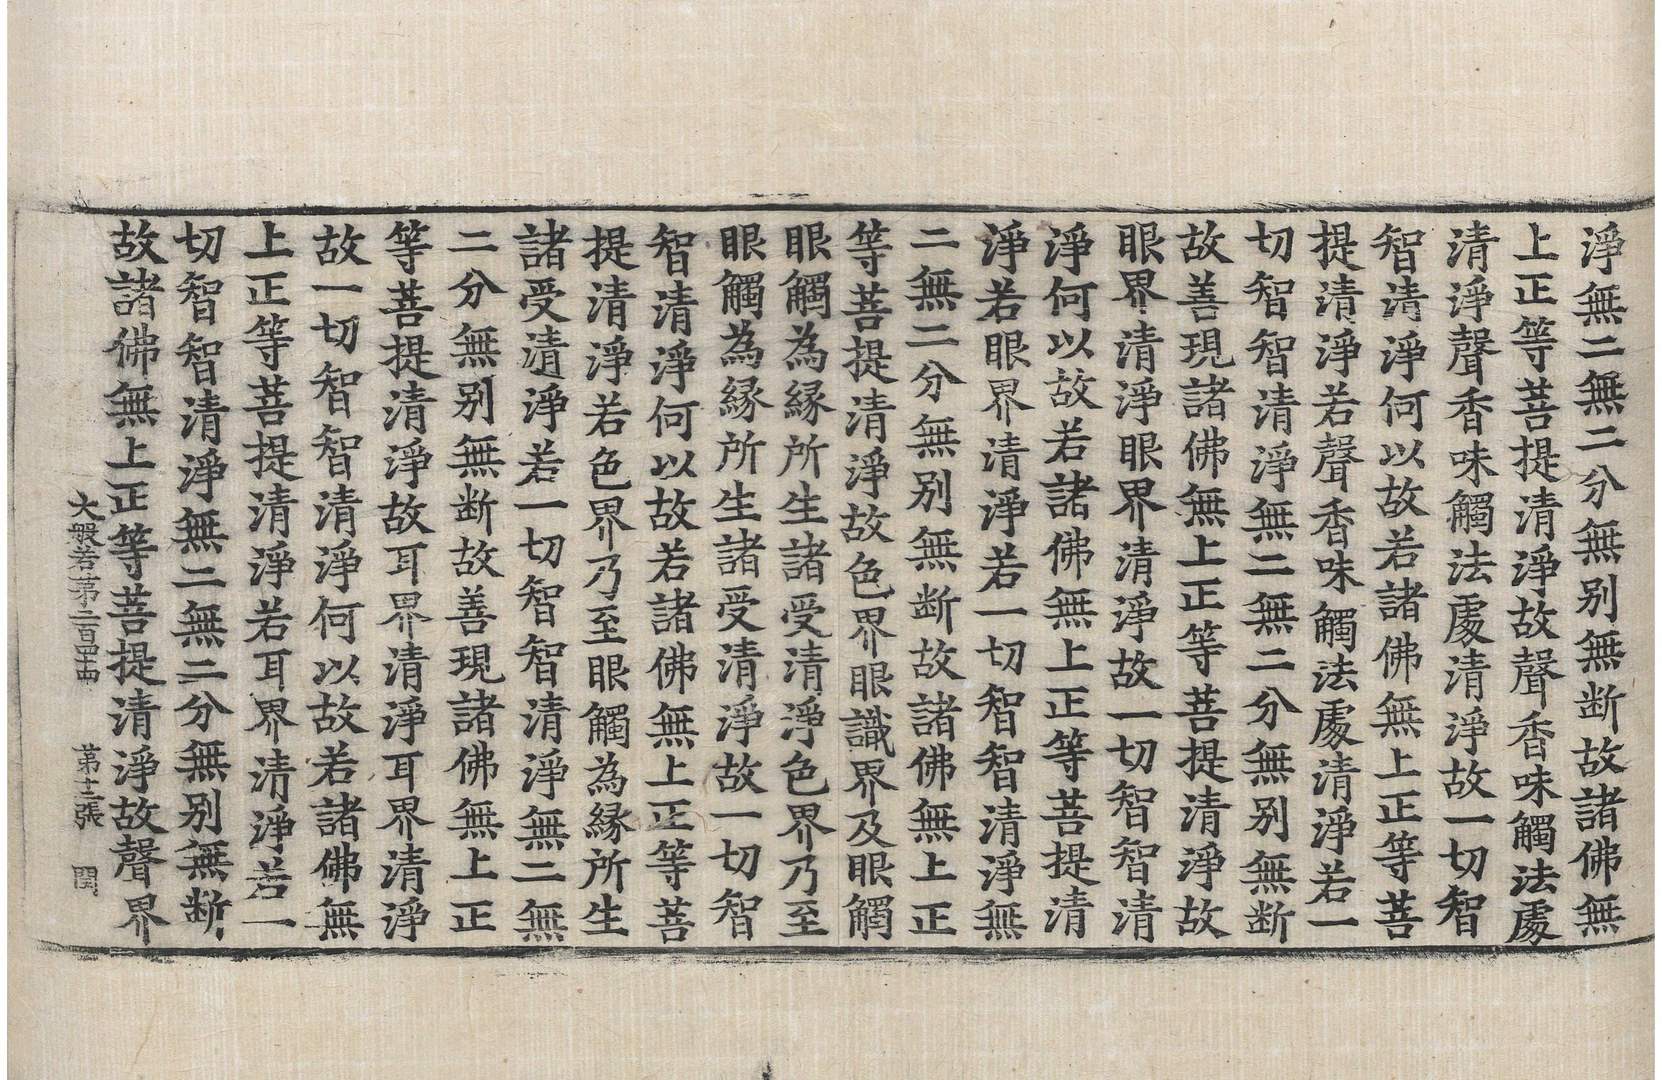 淨無二無二分無別無断故諸佛無
上正等菩提清淨故聲香味觸法處
清淨聲香味觸法處清淨故一切智
智清淨何以故若諸佛無上正等菩
提清淨若聲香味觸法處清淨若一
切智智清淨無二無二分無別無断
故善現諸佛無上正等菩提清淨故
眼界清淨眼界清淨故一切智智清
淨何以故若諸佛無上正等菩提清
淨若眼界清淨若一切智智清淨無
二無二分無別無断故諸佛無上正
等菩提清淨故色界眼識界及眼觸
眼觸為縁所生諸受清淨色界乃至
眼觸為縁所生諸受清淨故一切智
智清淨何以故若諸佛無上正等菩
提清淨若色界乃至眼觸為縁所生
諸受清淨若一切智智清淨無二無
二分無別無断故善現諸佛無上正
等菩提清淨故耳界清淨耳界清淨
故一切智智清淨何以故若諸佛無
上正等菩提清淨若耳界清淨若一
切智智清淨無二無二分無別無断
故諸佛無上正等菩提清淨故聲界
大般若第二百四十 第十二張 閏